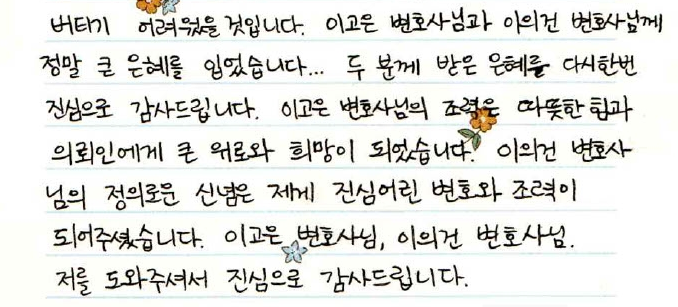 버티기 어려웠을 것입니다. 이고은 변호사님과 이의건 변호사님께
정말 큰 은혜를 입었습니다... 두 분께 받은 은혜를 다시한번
진심으로 감사드립니다. 이고은 변호사님의 조력은 따뜻한 힘과
의뢰인에게 큰 위로와 희망이 되었습니다. 이의건 변호사
님의 정의로운 신념은 제게 진심어린 변호와 조력이
되어주셨습니다. 이고은 변호사님, 이의건 변호사님.
저를 도와주셔서 진심으로 감사드립니다.